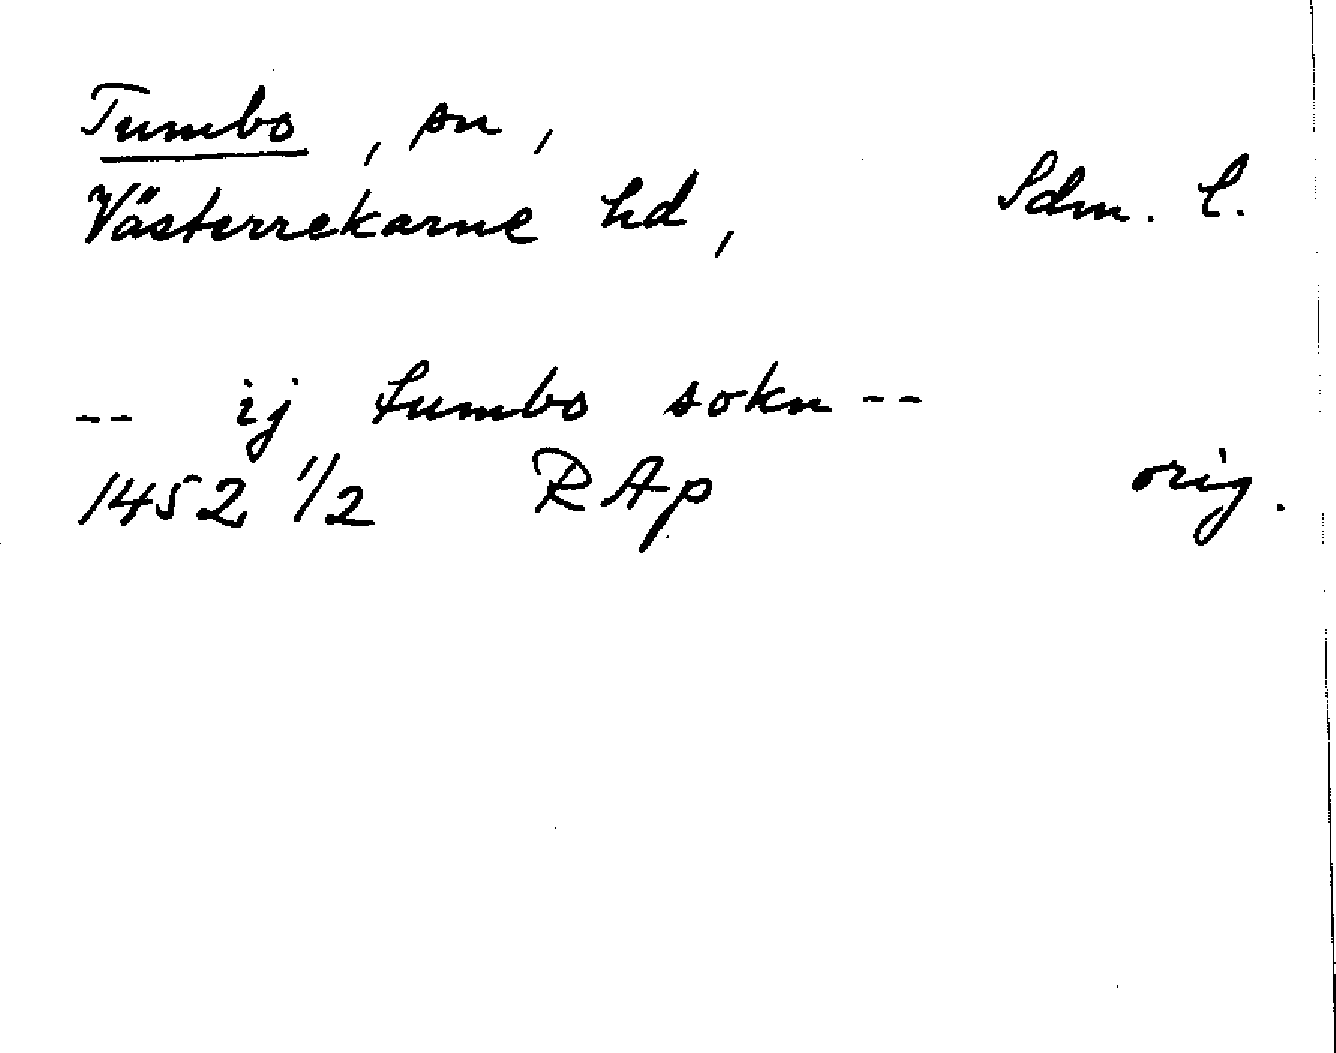 Tumbo, sn,
Västerrekarne hd, Sdm. l.
-- ij tumbo sokn --
1452 1/2 RAp orig.